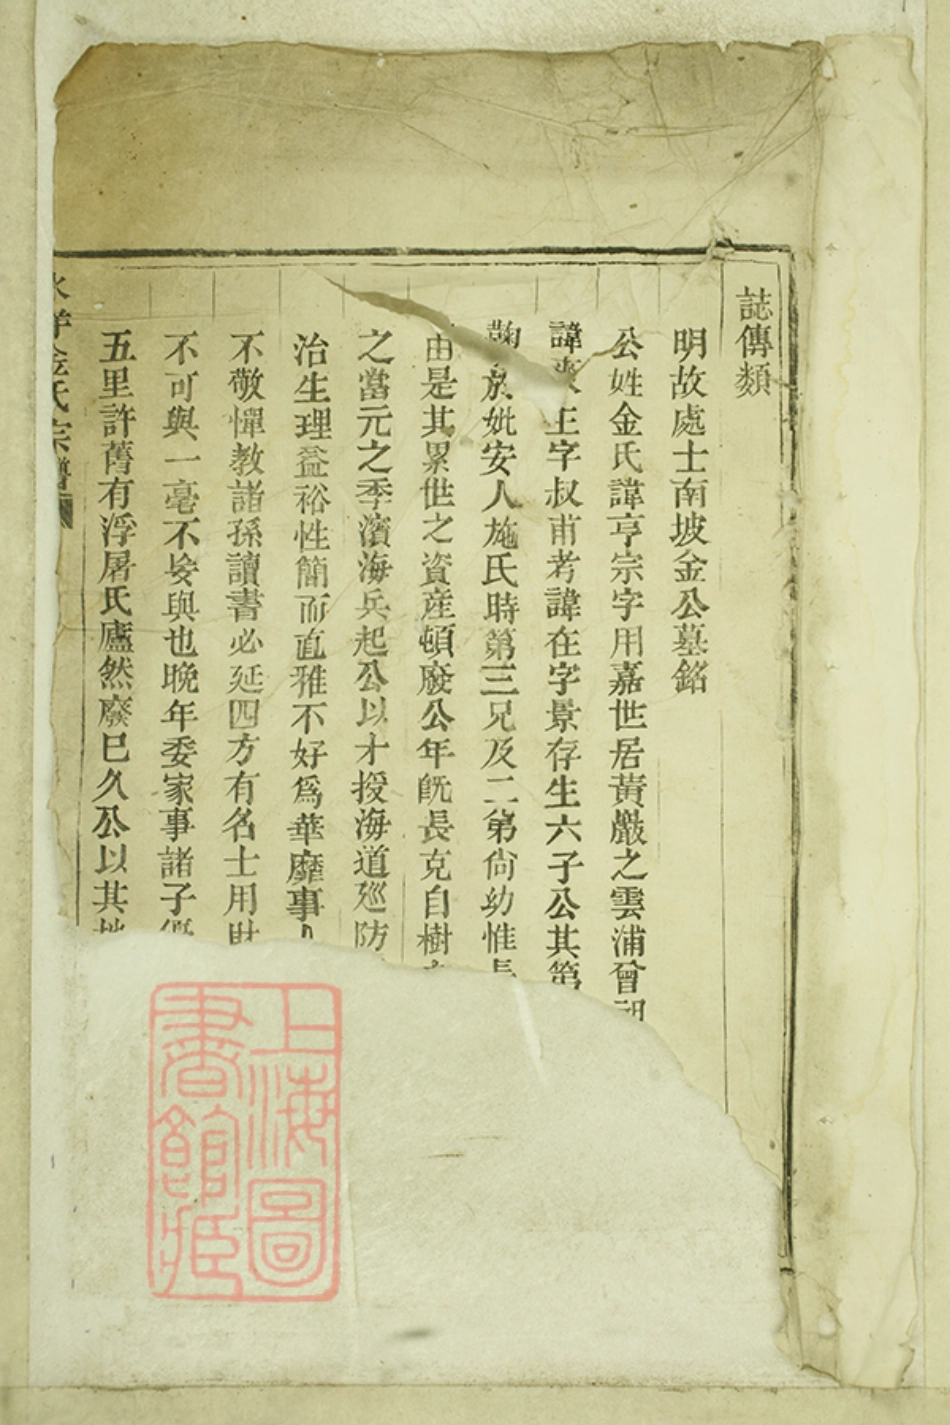 誌傳類
明故處士南坡金公墓銘
公姓金氏諱亨宗字用嘉世居黃嚴之雲浦曾祖
諱爽王字叔甫考諱在字景存生六子公其第
鞠於妣安人施氏時第三兄及二第尙幼惟長
由是其累世之資産頓廢公年旣長克自樹
之當元之季濱海兵起公以才授海道廵防
治生理益裕性簡而直雅不好爲華靡事
不敬憚教諸孫讀書必延四方有名士用財
不可與一毫不妄與也晚年委家事諸子
五里許舊有浮屠氏廬然廢巳久公以其地
洋金氏宗譜
上海圖
書館藏